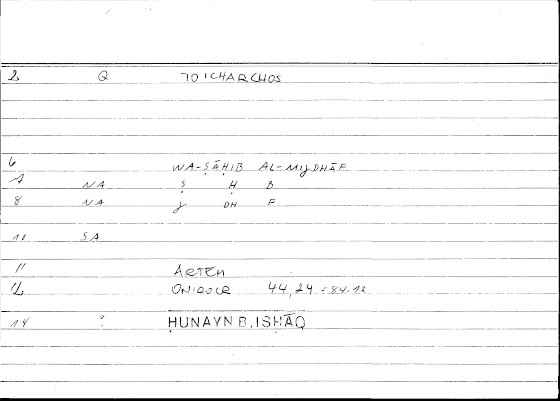 2 Q TOICHARCHOS
6 WA-ṢĀḤIB AL-MIJDHĀF
7 NA Ṣ Ḥ B
8 NA J DH F
10 SA
11 ARTEM
12 44,24 = 84.12
14 ? ḤUNAYN B. ISḤĀQ